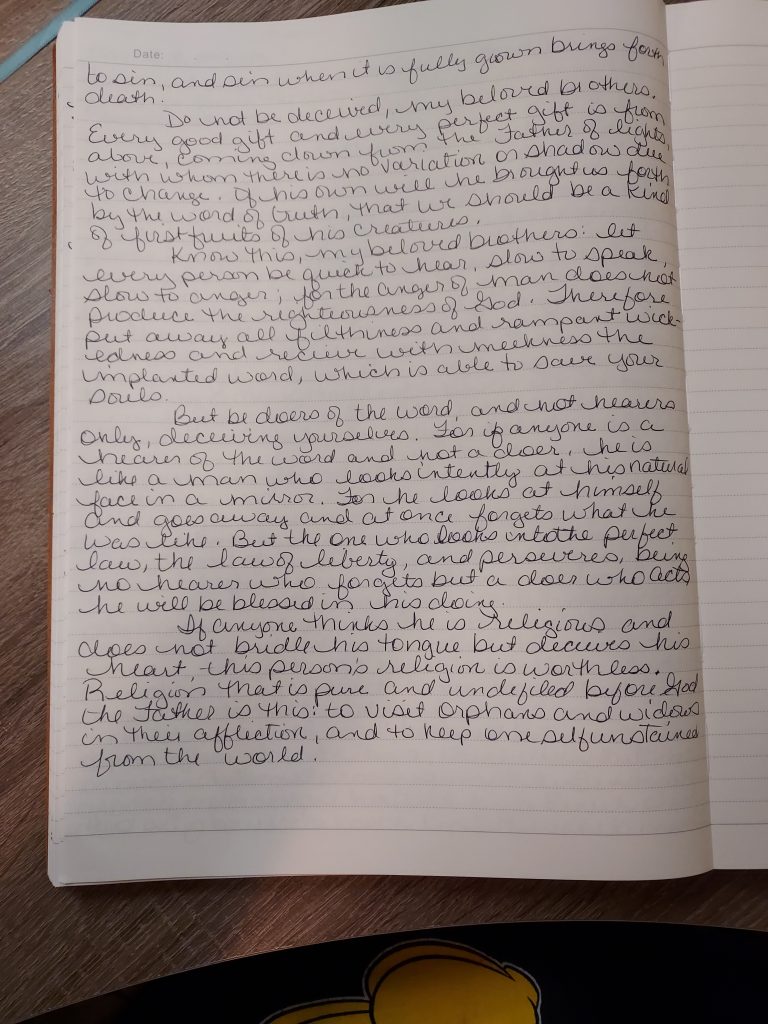 Date:
to sin, and sin when it is fully grown brings forth
death.
Do not be deceived, my beloved brothers.
Every good gift and every perfect gift is from
above, coming down from the Father of lights,
with whom there is no variation or shadow due
to change. Of his own will he brought us forth
by the word of truth, that we should be a kind
of firstfruits of his creatures.
Know this, my beloved brothers: let
every person be quick to hear, slow to speak,
slow to anger; for the anger of man does not
produce the righteousness of God. Therefore
put away all filthiness and rampant wick-
edness and recieve with meekness the
implanted word, which is able to save your
souls.
But be doers of the word, and not hearers
only, deceiving yourselves. For if anyone is a
hearer of the word and not a doer, he is
like a man who looks intently at his natural
face in a mirror. For he looks at himself
and goes away and at once forgets what he
was like. But the one who looks into the perfect
law, the law of liberty, and perseveres, being
no hearer who forgets but a doer who acts
he will be blessed in his doing.
If anyone thinks he is religious and
does not bridle his tongue but deceives his
heart, this person's religion is worthless.
Religion that is pure and undefiled before God
the Father is this: to visit orphans and widows
in their affliction, and to keep oneself unstained
from the world.